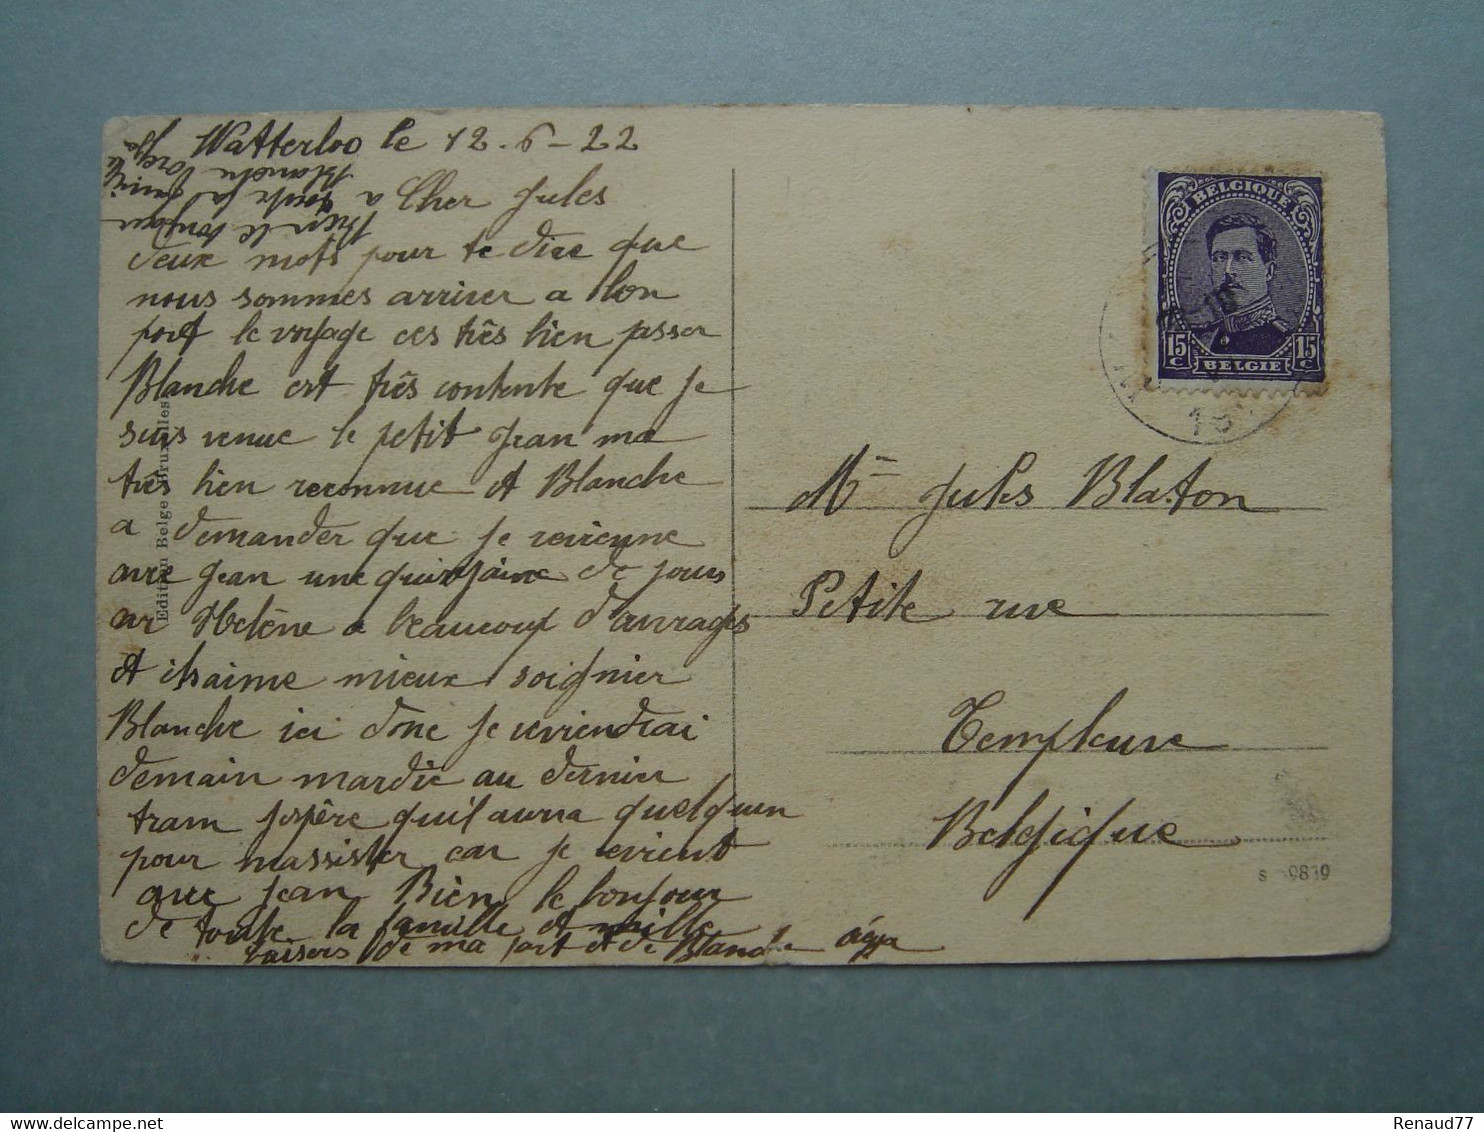 Watterloo le 12.6-22
Cher Jules
deux mots pour te dire que
nous sommes arriver a bon
port le voyage ces très bien passer
Blanche est très contente que je
suis venue le petit Jean ma
très bien reconnue et Blanche
a demander que je revienne
avec Jean une quinzaine de jours
car Helène a beaucoup d'auvrages
et ils aime mieux soignier
Blanche ici donc je reviendrai
demain mardie au dernier
tram jespère quil aura quelquun
pour massister car je revient
avec Jean Bien le bonjour
de toute la famille et mille
baisers de ma part et de Blanche
Bien le bonjour
a toute la famille
Blanche
Edition Belge Bruxelles
BELGIQUE
15 C
15 C
BELGIE
Mr Jules Blaton
Petite rue
Templeuve
Belgique
Renaud77